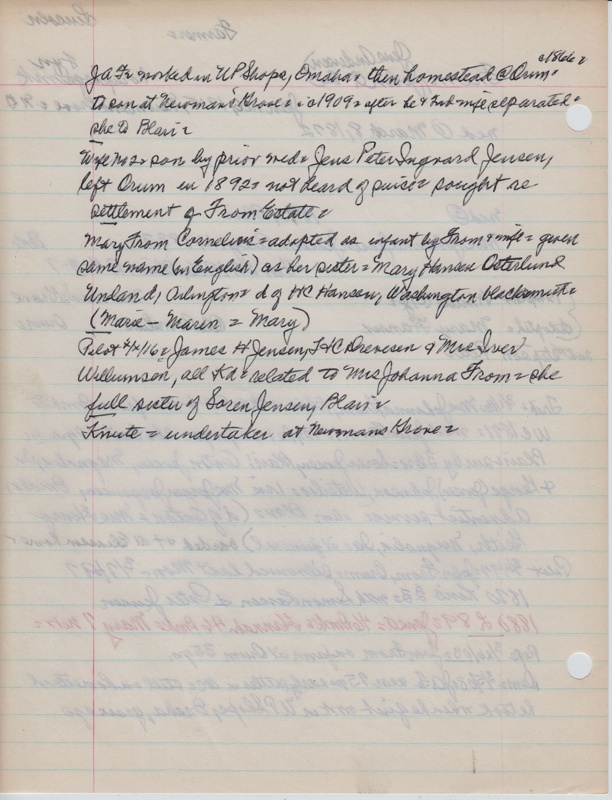 c1868=
JA Fr worked in UP Shops, Omaha= then homestead @ Orum=
to son at Newman's Grove= c1909= after he & 2nd wife separated=
she to Blair=
Wife No 2= son by prior med= Jens Peter Ingvard Jensen,
left Orum in 1892= not heard of since= sought re
settlement of From Estate=
Mary From Cornelius= adopted as infant by From & wife= given
same name (in English) as her sister= Mary Hansen Osterlund
Undand, Arlington= d of HC Hansen, Washington blacksmith=
(Marie - Maren = Mary)
Pilot 4/4/16= James H Jensen, HC Drevesen & Mrs Iver
Willumsen, all Kd= related to Mrs Johanna From= she
full sister of Soren Jensen, Blair=
Knute= undertaker at Newmans Grove=